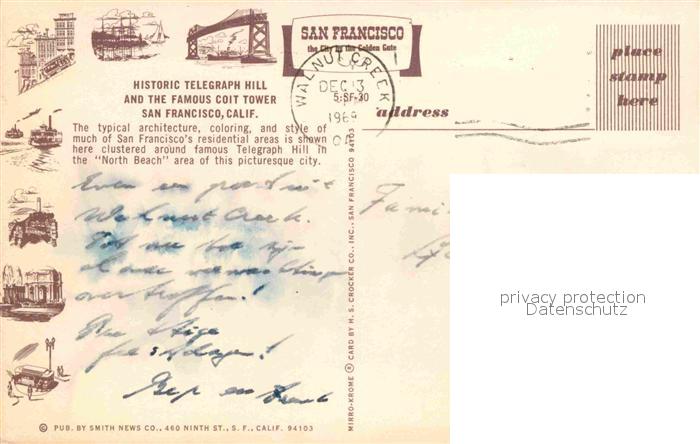 SAN FRANCISCO
the City by the Golden Gate
WALNUT CREEK
DEC 13
1969
5-SF-30
place
stamp
here
address
HISTORIC TELEGRAPH HILL
AND THE FAMOUS COIT TOWER
SAN FRANCISCO, CALIF.
The typical architecture, coloring, and style of
much of San Francisco's residential areas is shown
here clustered around famous Telegraph Hill in
the "North Beach" area of this picturesque city.
Even een
Walnut Creek.
Tot nu toe zijn
al onze verwachtingen
overtroffen!
Prettige
feestdagen!
Bep en
Fami
privacy protection
Datenschutz
MIRRO-KROME ® CARD BY H. S. CROCKER CO., INC., SAN FRANCISCO 94103
© PUB. BY SMITH NEWS CO., 460 NINTH ST., S. F., CALIF. 94103